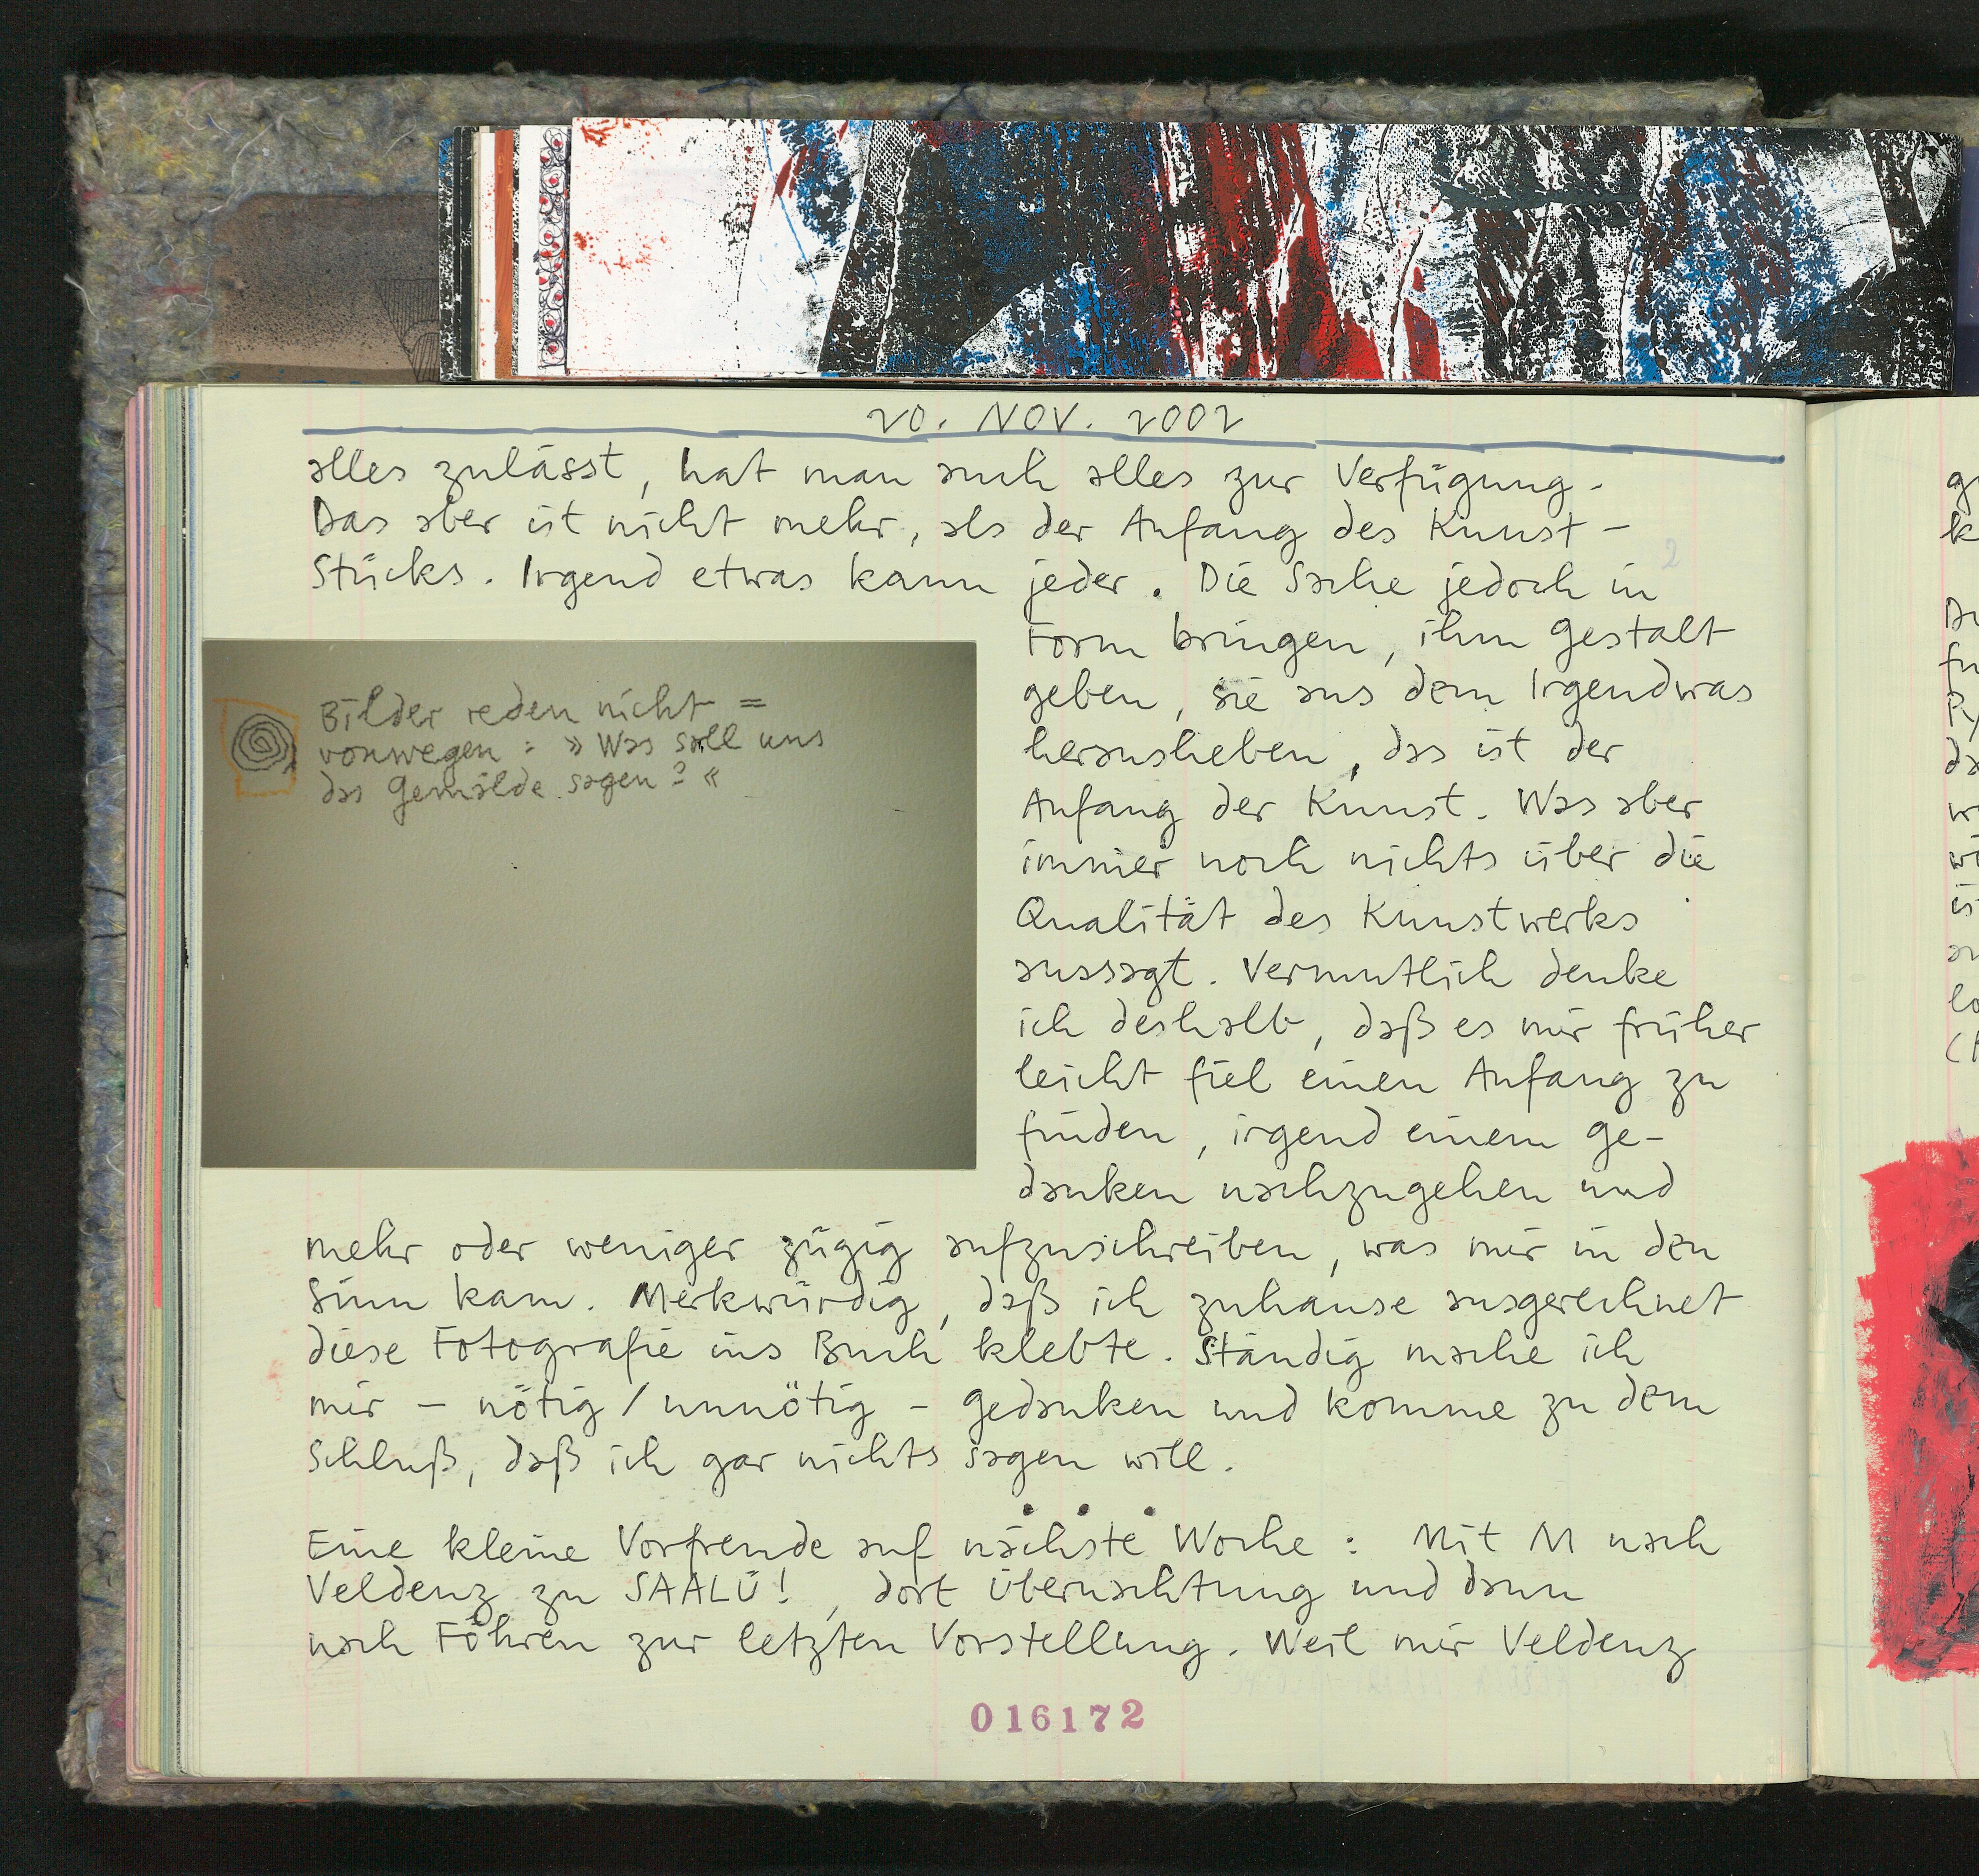 20. NOV. 2002
alles zulässt, hat man auch alles zur Verfügung.
Das aber ist nicht mehr, als der Anfang des Kunst-
Stücks. Irgend etwas kann jeder. Die Sache jedoch in
Form bringen, ihm Gestalt
geben, sie aus dem Irgendwas
herausheben, das ist der
Anfang der Kunst. Was aber
immer noch nichts über die
Qualität des Kunstwerks
aussagt. Vermutlich denke
ich deshalb, daß es mir früher
leicht fiel einen Anfang zu
finden, irgend einem Ge-
danken nachzugehen und
mehr oder weniger zügig aufzuschreiben, was mir in den
Sinn kam. Merkwürdig, daß ich zuhause ausgerechnet
diese Fotografie ins Buch klebte. Ständig mache ich
mir – nötig / unnötig – Gedanken und komme zu dem
Schluß, daß ich gar nichts sagen will.
Bilder reden nicht =
vonwegen : » Was soll uns
das Gemälde sagen? «
Eine kleine Vorfreude auf nächste Woche : Mit M nach
Veldenz zu SAALÜ!, dort Übernachtung und dann
nach Föhren zur letzten Vorstellung. Weil mir Veldenz
016172